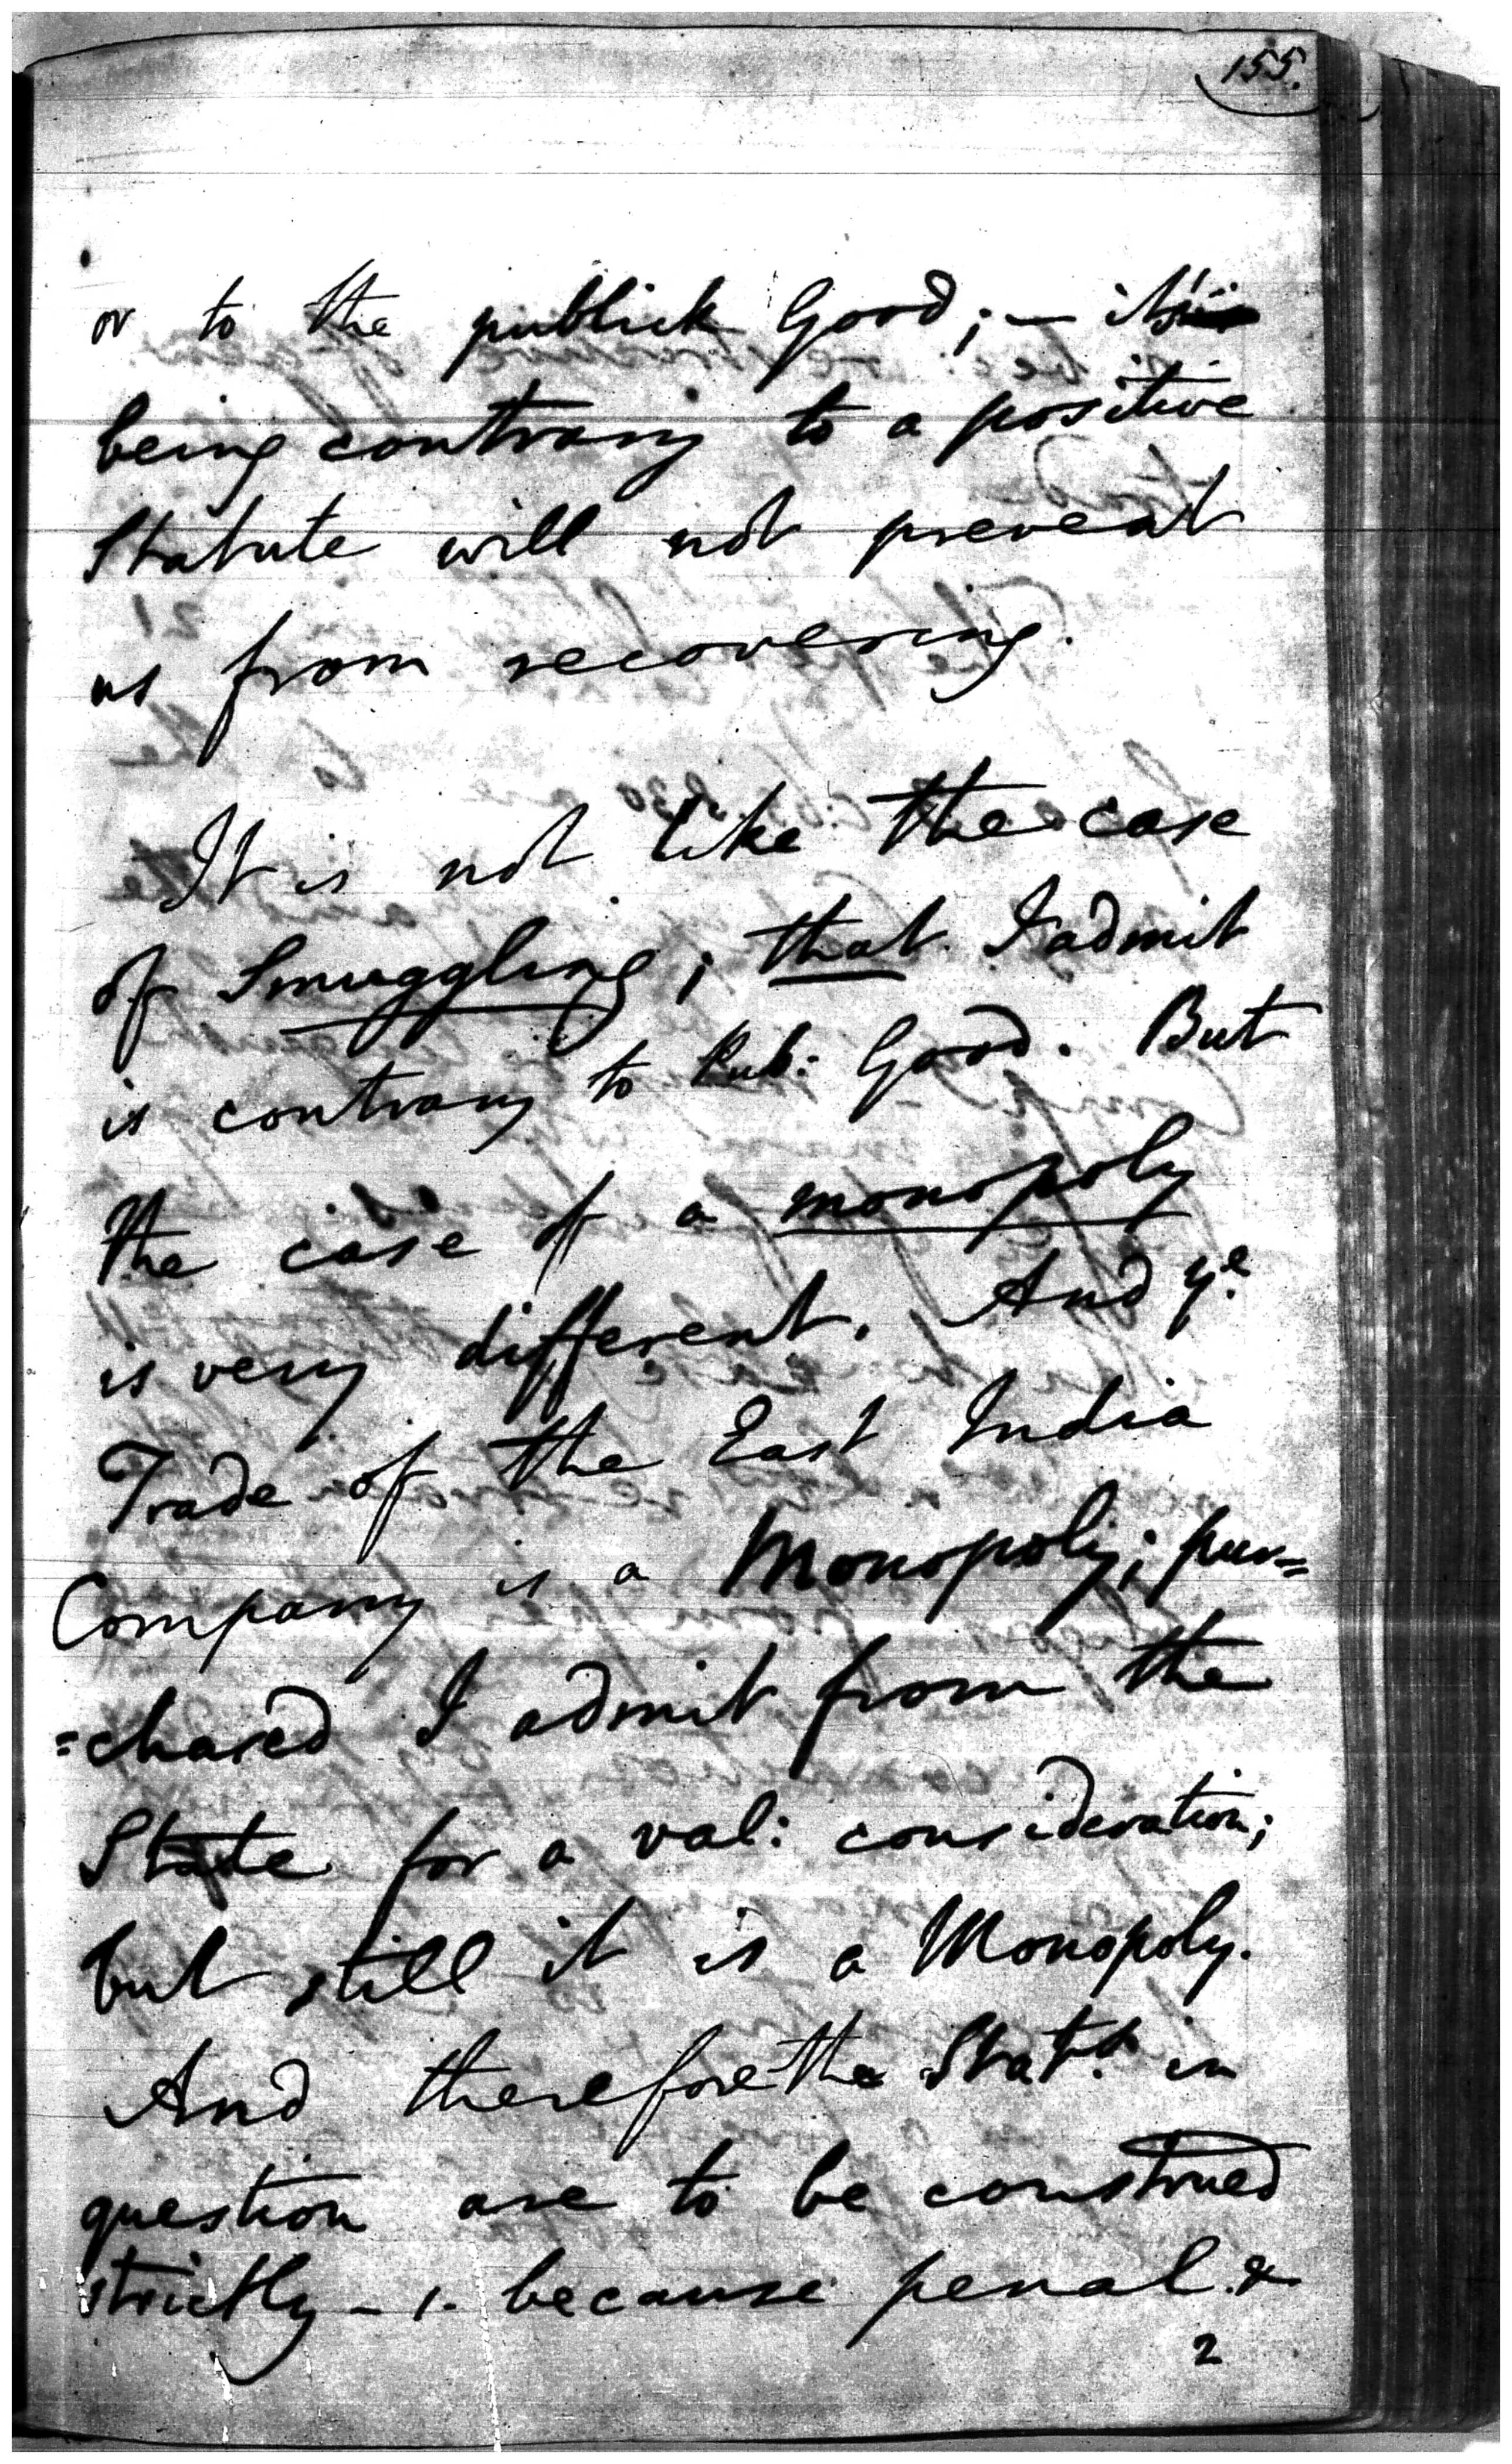 155.
or to the publick Good; — its
being contrary to a positive
Statute will not prevent
us from recovering.
It is not like the case
of Smuggling; that I admit
is contrary to Pub: Good. But
the case of a monopoly
is very different. And yᵉ
Trade of the East India
Company is a Monopoly; pur=
=chased I admit from the
State for a val: consideration;
but still it is a Monopoly.
And therefore the Statᵗˢ. in
question are to be construed
strictly - 1. because penal &
2